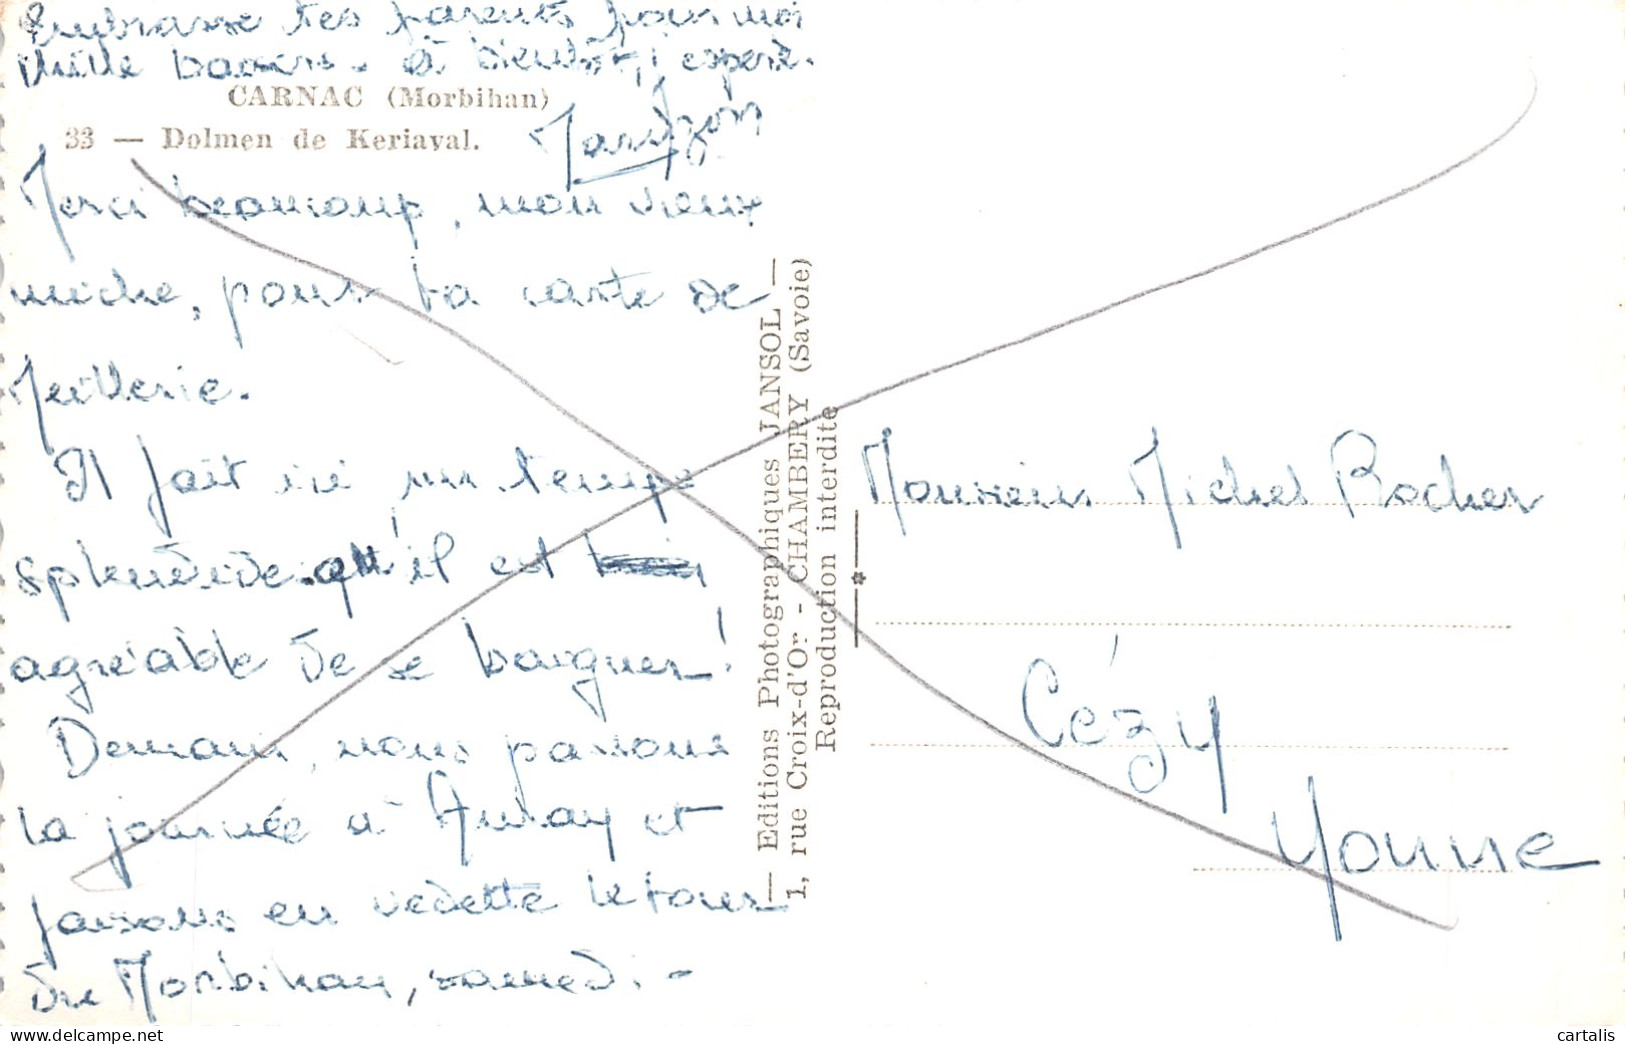 Embrasse tes parents pour moi
Mille baisers. à bientôt, j'espère.
CARNAC (Morbihan)
33 — Dolmen de Keriaval.
Merci beaucoup, mon vieux
miche, pour ta carte de
Il fait ici un temps
splendide qu'il est
agréable de se baigner!
Demain, nous passons
la journée à Auray et
faisons en vedette le tour
du Morbihan, samedi. -
— Editions Photographiques JANSOL —
1, rue Croix-d'Or - CHAMBERY (Savoie)
Reproduction interdite
Monsieur Michel Rocher
Cézy
Yonne
cartalis